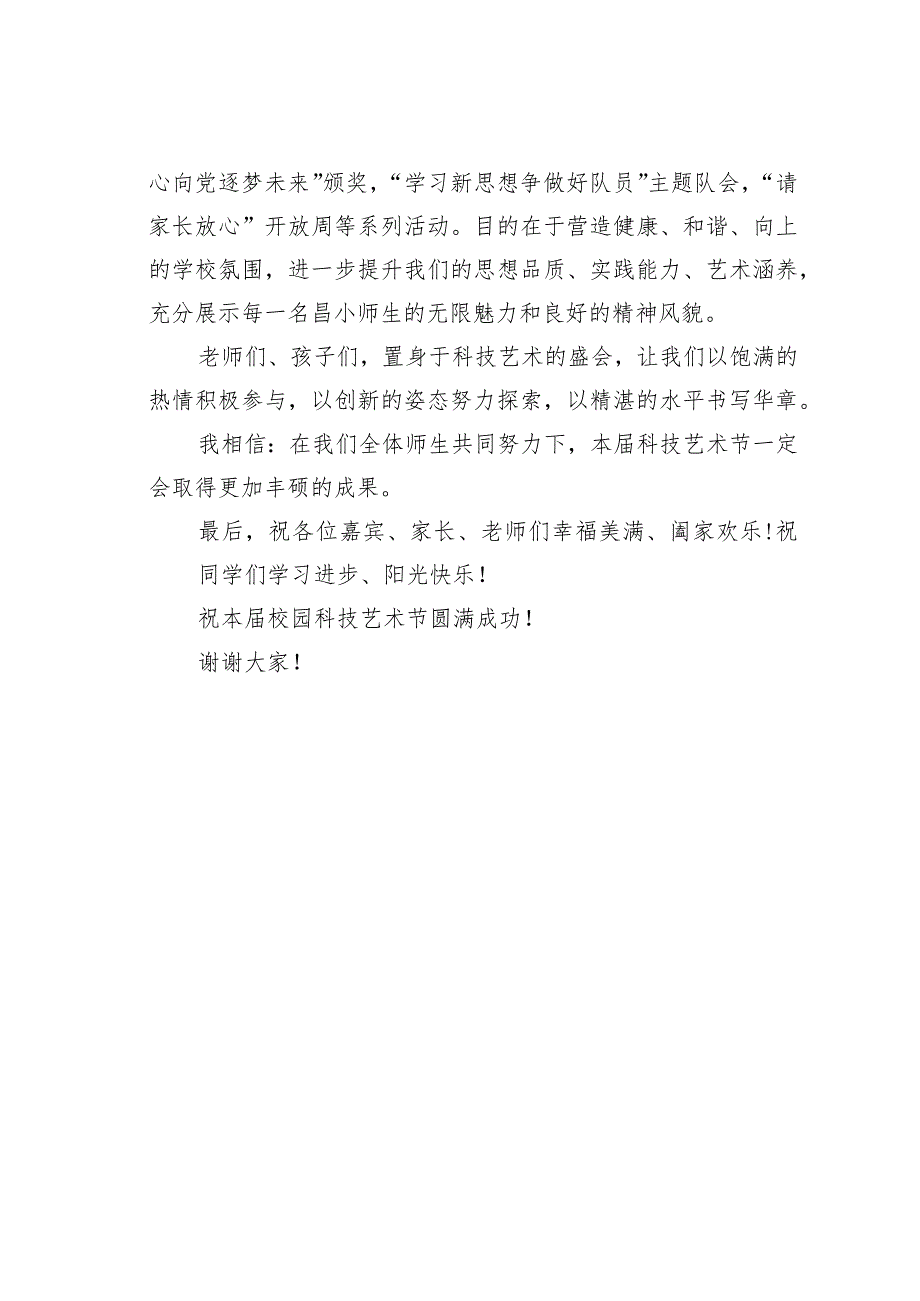 心向党逐梦未来”颁奖，“学习新思想争做好队员”主题队会，“请
家长放心”开放周等系列活动。目的在于营造健康、和谐、向上
的学校氛围，进一步提升我们的思想品质、实践能力、艺术涵养，
充分展示每一名昌小师生的无限魅力和良好的精神风貌。
老师们、孩子们，置身于科技艺术的盛会，让我们以饱满的
热情积极参与，以创新的姿态努力探索，以精湛的水平书写华章。
我相信：在我们全体师生共同努力下，本届科技艺术节一定
会取得更加丰硕的成果。
最后，祝各位嘉宾、家长、老师们幸福美满、阖家欢乐！祝
同学们学习进步、阳光快乐！
祝本届校园科技艺术节圆满成功！
谢谢大家！